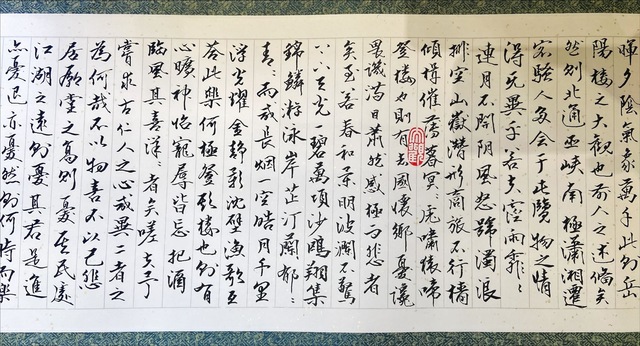 暉夕陰氣象萬千此則岳
陽樓之大觀也前人之述備矣
然則北通巫峽南極瀟湘遷
客騷人多會于此覽物之情
得无異乎若夫霪雨霏〻
連月不開陰風怒號濁浪
排空山嶽潛形商旅不行檣
傾楫摧薄暮冥〻虎嘯猿啼
登樓也則有去國懷鄉憂讒
畏譏滿目蕭然感極而悲者
矣至若春和景明波瀾不驚
上下天光一碧萬頃沙鷗翔集
錦鱗游泳岸芷汀蘭郁〻
青〻而或長烟一空皓月千里
浮光耀金靜影沈璧漁歌互
答此樂何極登斯樓也則有
心曠神怡寵辱皆忘把酒
臨風其喜洋〻者矣嗟夫予
嘗求古仁人之心或異二者之
為何哉不以物喜不以己悲
居廟堂之高則憂其民處
江湖之遠則憂其君是進
亦憂退亦憂然則何時而樂